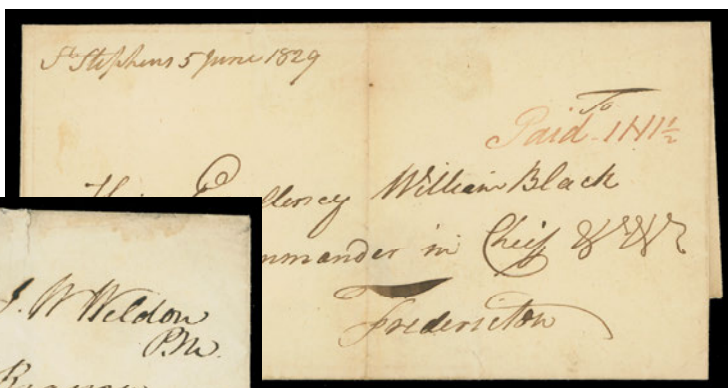 St Stephens 5 June 1829
To
Paid - 1N1½
His Excellency William Black
Commander in Chief &c &c &c
Fredericton
J. W Weldon
P.M.